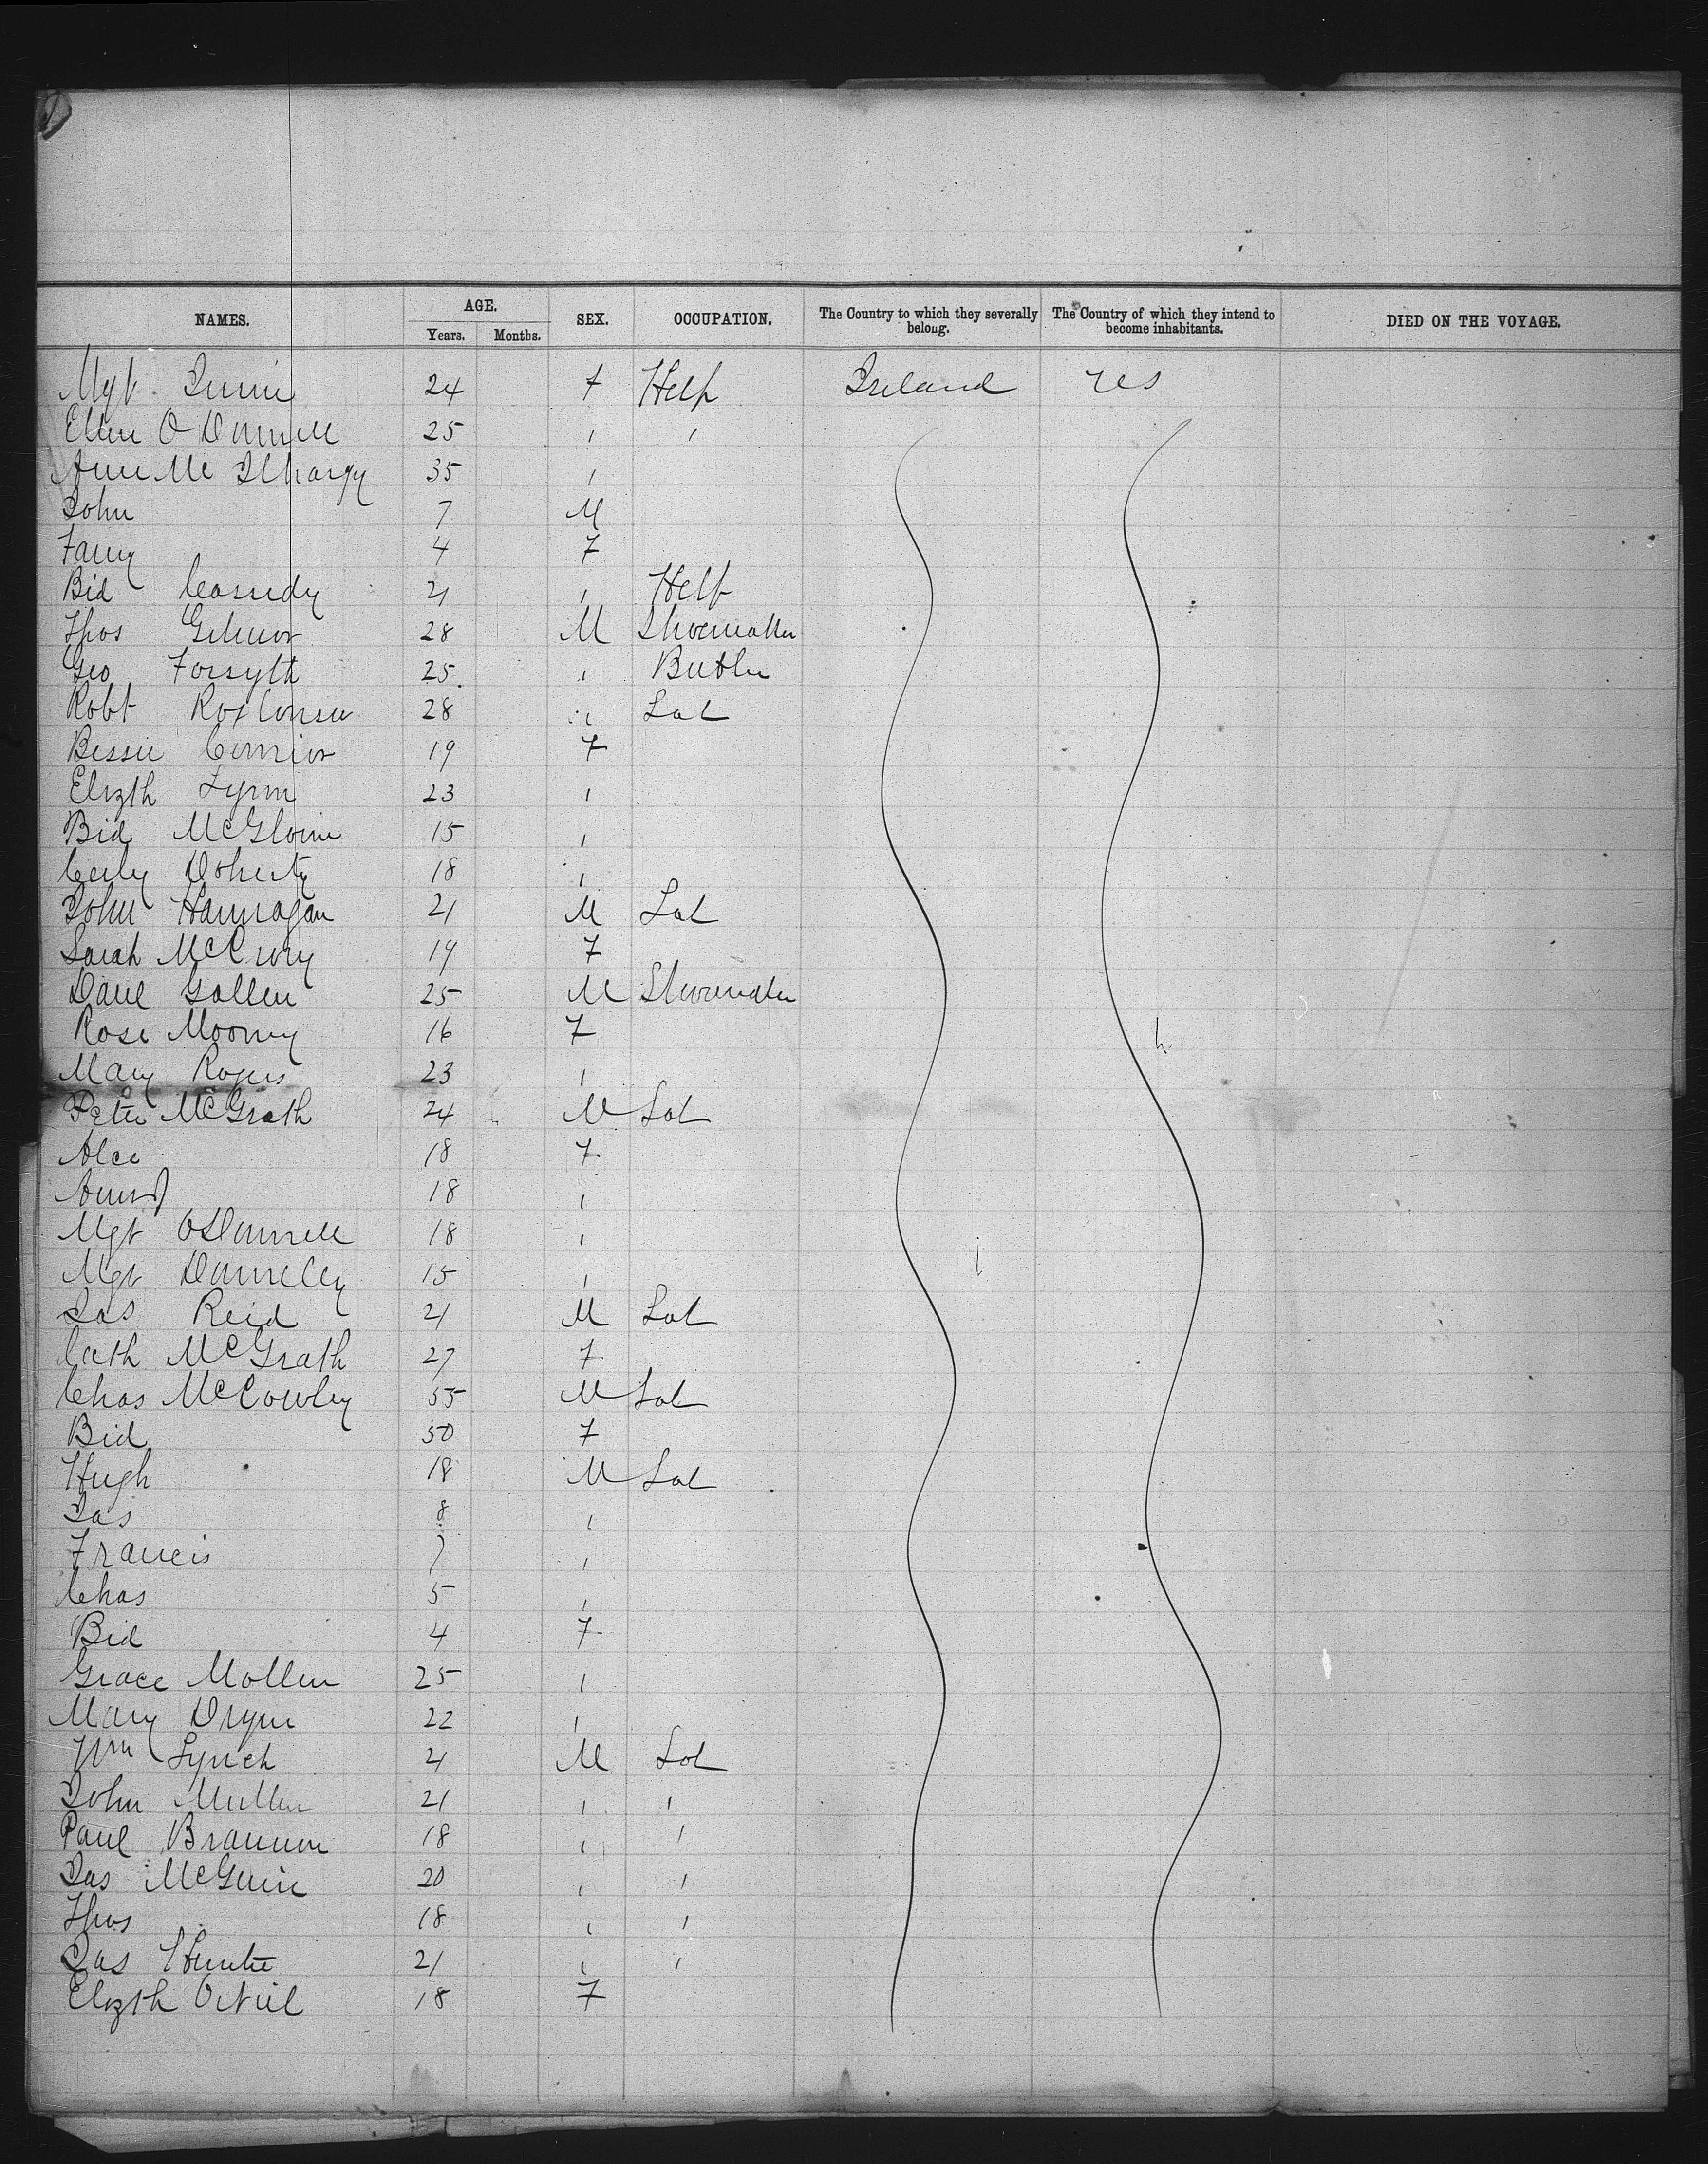 NAMES. AGE. SEX. OCCUPATION. The Country to which they severally belong. The Country of which they intend to become inhabitants. DIED ON THE VOYAGE.
Years. Months.
Mgt 24 f Help Ireland
Ellen O Donnell 25 " "
Ann Mc Ilhargy 35 "
John 7 M
Fanny 4 F
Bid Cassidy 21 " Help
Thos Gilmor 28 M Shoemaker
Geo Forsyth 25 " Butler
Robt 28 " Lab
Bessie Connior 19 F
Elizth Lynn 23 "
Bid McGloine 15 "
Cecly Doherty 18 "
John Hannagan 21 M Lab
Sarah McCrory 19 F
Danl Gallen 25 M Shoemaker
Rose Mooney 16 F
Mary Rogers 23 "
Peter McGrath 24 M Lab
Alce 18 F
18 "
Mgt ODonnell 18 "
Mgt Donnelly 15 "
Jas Reid 21 M Lab
Cath McGrath 27 F
Chas McCowley 55 M Lab
Bid 50 F
Hugh 18 M Lab
Jas 8 "
Francis 7 "
Chas 5 "
Bid 4 F
Grace Mollen 25 "
Mary 22 "
Wm Lynch 21 M Lab
John Mullen 21 " "
Paul Brannon 18 " "
Jas McGuire 20 " "
Thos 18 " "
Jas Hunter 21 " "
Elizth ONeil 18 F